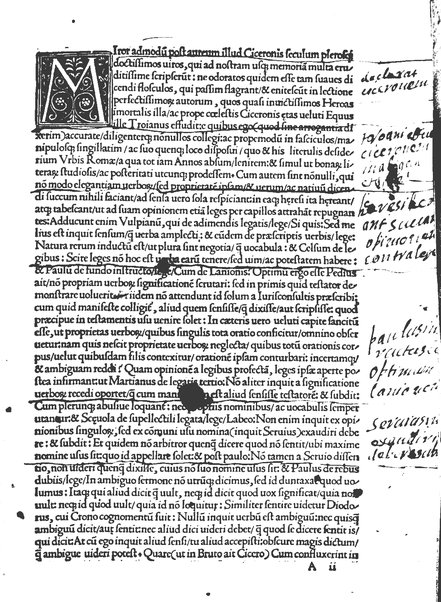 MIror admodũ post aureum illud Ciceronis seculum plerosq;
doctissimos uiros, qui ad nostram usq; memoriã multa eru
ditissime scripserũt: ne odoratos quidem esse tam suaues di
cendi flosculos, qui passim flagrãt & eniteſcũt in lectione
perfectissimoꝝ autorum, quos quasi inuictissimos Heroas
imortalis illa/ac prope cœlestis Ciceronis ętas ueluti Equus
ille Troianus effudit: e quibus ego (quod sine arrogantia di
xerim) accurate/diligenterq; nonullos collegi: ac propemodũ in fasciculos/ma
nipulosq; singillatim/ac suo quenq; loco disposui/quo & his literalis deside
rium Vrbis Romæ/a qua tot iam Annos absum/lenirem: & simul ut bonaꝝ lite
raꝝ studiosis/ac posteritati utcunq; prodessem. Cum autem sint nõnulli, qui
nõ modo elegantiam uerboꝝ/sed proprietatẽ ipsam/& uerum/ac natiuũ dicen
di succum nihili faciant/ad sensa uero sola respiciant: in eaq; heresi ita hereant/
atq; tabescant/ut ad suam opinionem etiã leges per capillos attrahãt repugnan
tes: Adducunt enim Vulpianũ, qui de adimendis legatis/lege/Si quis: Sed me
lius est inquit sensum/q̃ uerba amplecti; & eũdem de præscriptis uerbis/lege:
Natura rerum inductũ est/ut plura sint negotia/q̃ uocabula: & Celsum de le
gibus: Scite leges nõ hoc est uerba eaꝝ tenere/sed uim/ac potestatem habere:
& Paulũ de fundo instructo/lege/Cum de Lanionis: Optimũ ergo esse Pedius
ait/nõ propriam uerboꝝ significationẽ scrutari: sed in primis quid testator de-
monstrare uoluerit: idem nõ attendunt id solum a Iurisconsultis præscribi:
cum quid manifeste colligit, aliud quem sensisse/q̃ dixisse/aut scripsisse: quod
præcipue in testamentis usu uenire solet: In cæteris uero ueluti capite sancitũ
esse, ut proprietas uerboꝝ/quibus singulis tota oratio conficitur/omnino obser
uetur: nam quis nescit proprietate uerboꝝ neglecta/quibus totũ orationis cor-
pus/uelut quibusdam filis contexitur/orationẽ ipsam conturbari: incertamq;/
& ambiguam reddi? Quam opinionẽ a legibus profectã, leges ipsæ aperte po
stea infirmant: ut Martianus de legatis tertio: Nõ aliter inquit a significatione
uerboꝝ recedi oportet/q̃ cum est aliud sensisse testatorẽ: & subdit:
Cum plerunq; abusiue loquant: neq; propriis nominibus/ac uocabulis semper
utant: & Scæuola de supellectili legata/lege/Labeo: Non enim inquit ex opi
nionibus singuloꝝ, sed ex cõmuni usu nomina (inquit Seruius) exaudiri debe
re: & subdit: Et quidem nõ arbitror quenq̃ dicere quod nõ sentit/ubi maxime
nomine usus sit: quo id appellare solet: & post paulo: Nõ tamen a Seruio dissen
tio, non uideri quenq̃ dixisse, cuius nõ suo nomine usus sit: & Paulus de rebus
dubiis/lege/In ambiguo sermone nõ utrũq; dicimus, sed id duntaxat quod uo
lumus: Itaq; qui aliud dicit q̃ uult, neq; id dicit quod uox significat/quia non
uult, neq; id quod uult/quia id nõ loquitur: Similiter sentire uidetur Diodo-
rus, cui Crono cognomentũ fuit: Nullũ inquit uerbũ est ambiguũ: nec quisq̃
ambiguũ dicit/aut sentit: nec aliud dici uideri debet/q̃ quod se dicere sentit is/
qui dicit: At cũ ego inquit aliud sensi/tu aliud accepisti: obscure magis dictum/
q̃ ambigue uideri potest. Quare (ut in Bruto ait Cicero) Cum confluxerint in
A ii
declarat
ciceronem
troiani
ciceronem
heresi her
ant succum
opinionem
contra leges
paulus in
optimum
lanionis